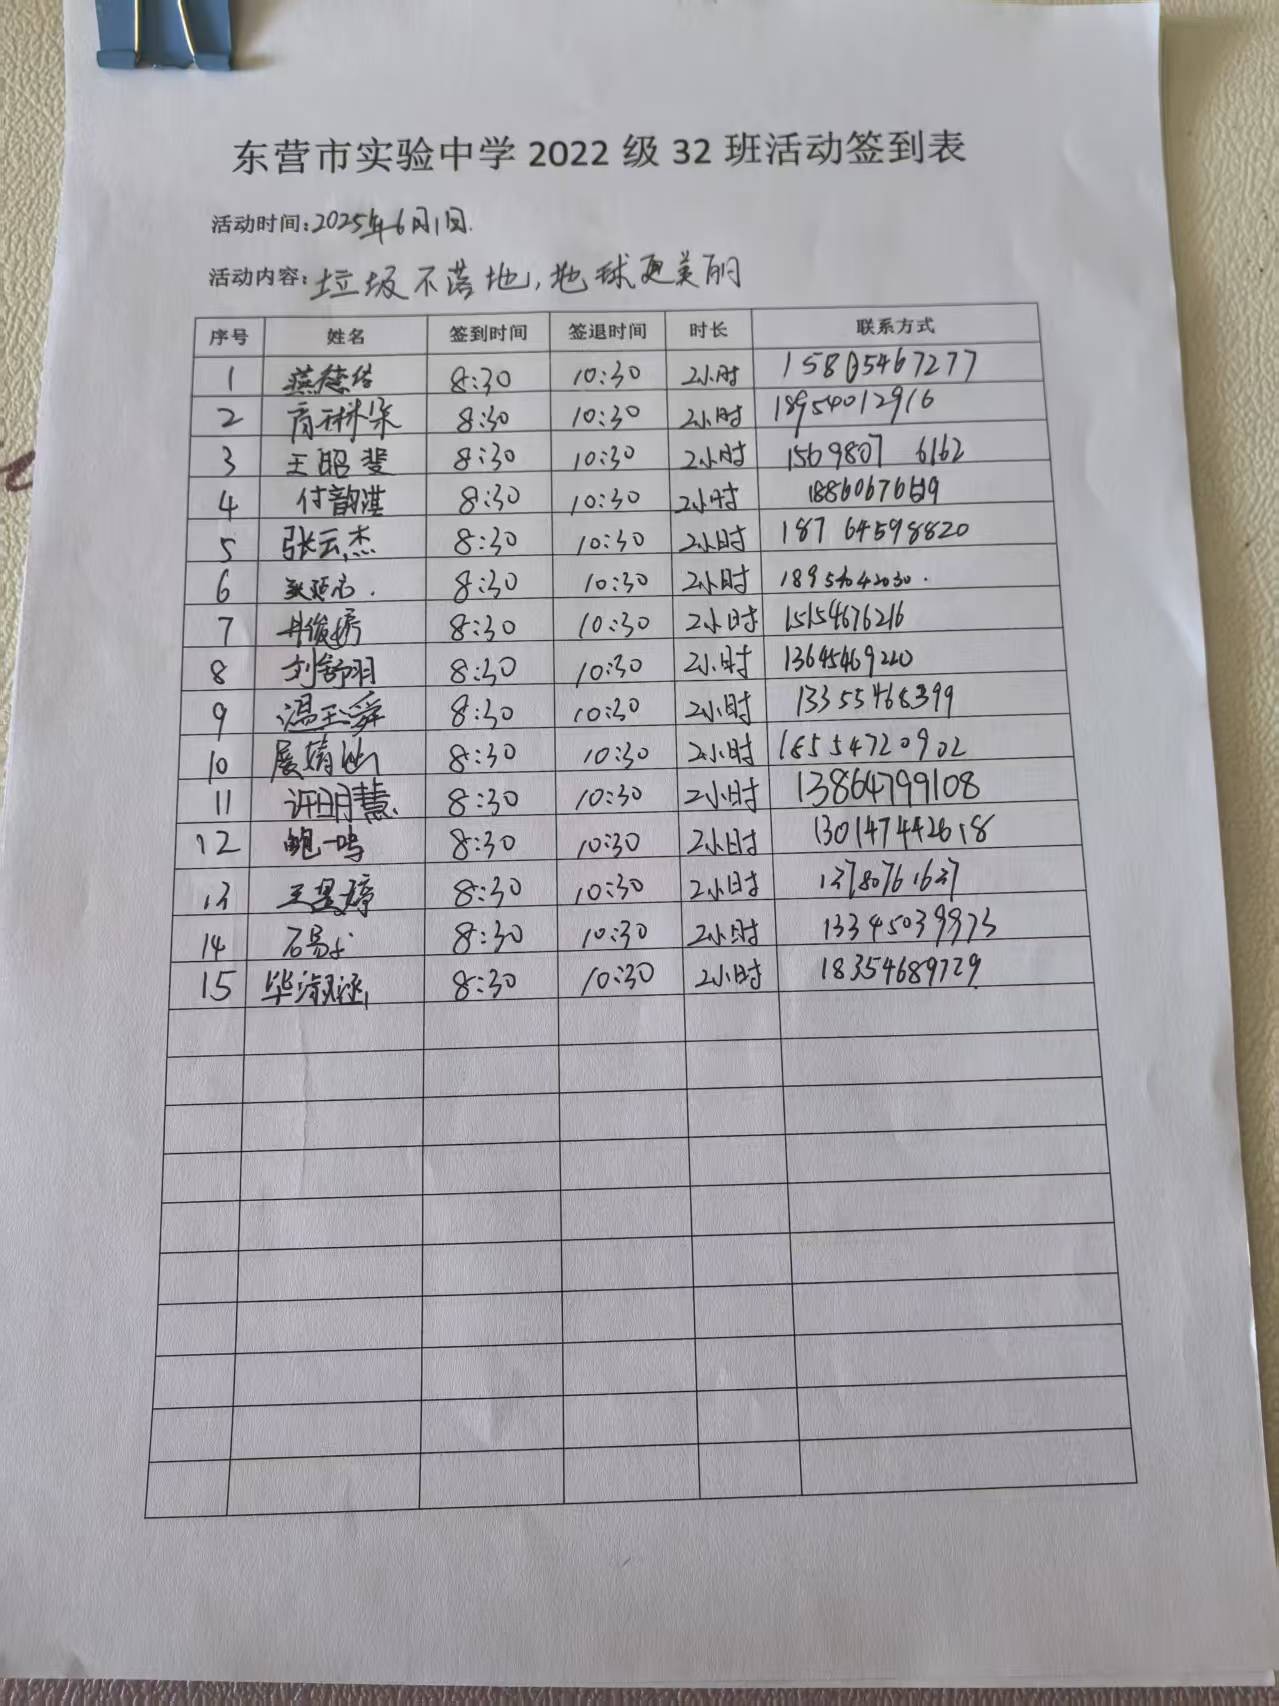 东营市实验中学2022级32班活动签到表
活动时间:2025年6月1日.
活动内容:垃圾不落地,地球更美丽
序号 姓名 签到时间 签退时间 时长 联系方式
1 8:30 10:30 2小时
2 8:30 10:30 2小时 18954012916
3 王昭斐 8:30 10:30 2小时 1569807 6162
4 付韵淇 8:30 10:30 2小时
5 张云杰 8:30 10:30 2小时 187 64598820
6 8:30 10:30 2小时
7 8:30 10:30 2小时 15154676216
8 刘舒羽 8:30 10:30 2小时
9 温玉舜 8:30 10:30 2小时 13355468399
10 8:30 10:30 2小时 18554720902
11 许明慧 8:30 10:30 2小时 13864799108
12 鲍一鸣 8:30 10:30 2小时
13 8:30 10:30 2小时 13780761637
14 8:30 10:30 2小时 13345039973
15 毕淑涵 8:30 10:30 2小时 18354689729